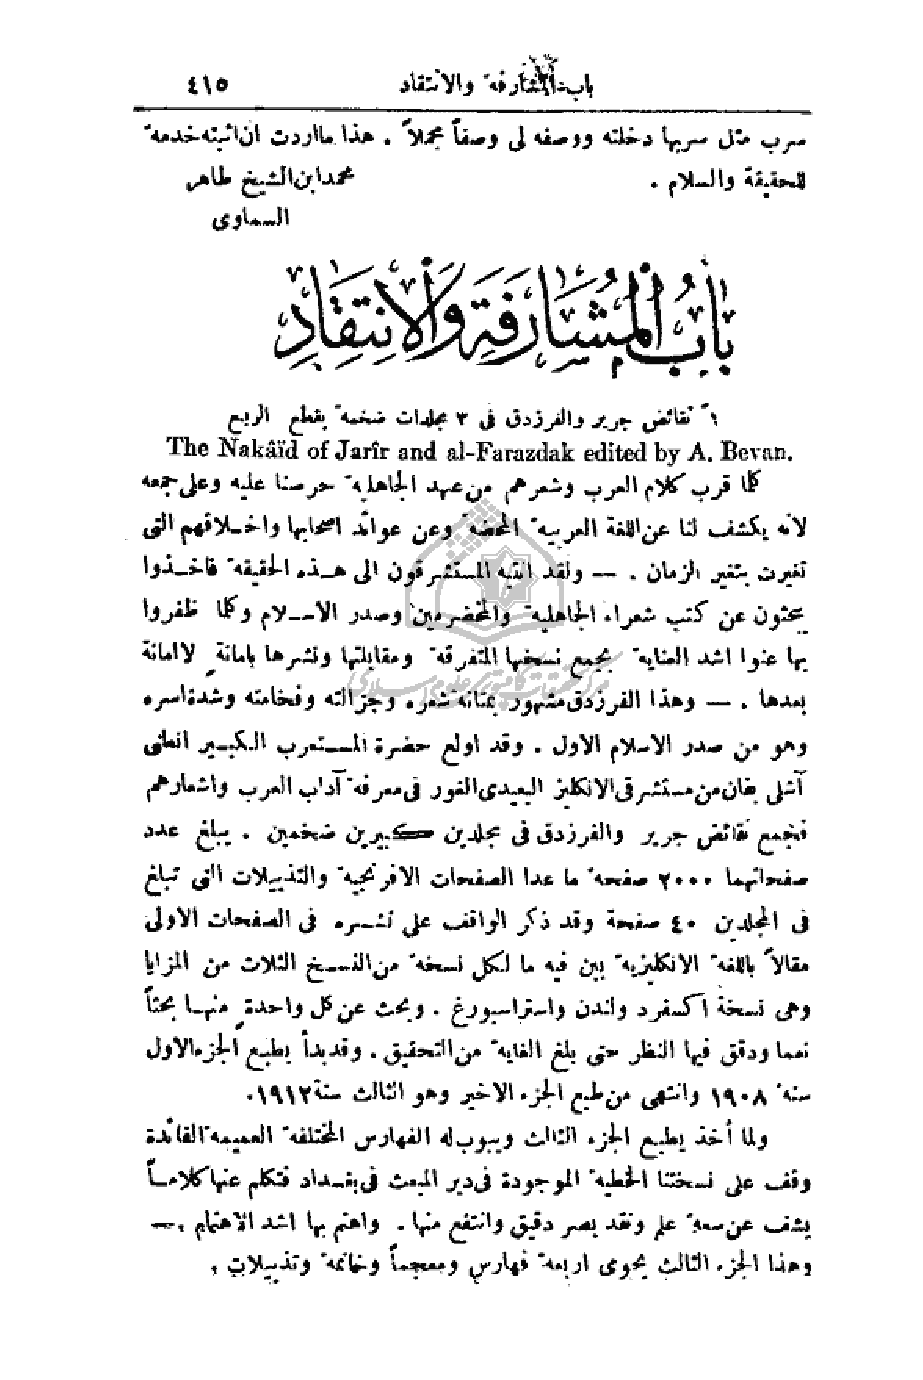 باب المشارفة والانتقاد ٤١٥
سرب مثل سربها دخلته ووصفه لي وصفاً مجملاً . هذا ما اردت ان اثبته خدمة
للحقيقة والسلام . محمد ابن الشيخ طاهر
السماوى
باب المشارفة والانتقاد
١ً نقائض جرير والفرزدق فى ٣ مجلدات ضخمة بقطع الربع
The Nakâïd of Jarîr and al-Farazdak edited by A. Bevan.
كلما قرب كلام العرب وشعرهم من عهد الجاهلية حرصنا عليه وعلى جمعه
لانه يكشف لنا عن اللغة العربية المحضة وعن عوائد اصحابها واخـلاقهم التى
تغيرت بتغير الزمان . — ولقد انتبه المستشرقون الى هـذه الحقيقة فاخـذوا
يبحثون عن كتب شعراء الجاهلية والمخضرمين وصدر الاسـلام وكلما ظفروا
بها عنوا اشد العناية بجمع نسخها المتفرقة ومقابلتها ونشرها بامانة لا امانة
بعدها . — وهذا الفرزدق مشهور بمتانة شعره وجزالته وفخامته وشدة اسره
وهو من صدر الاسلام الاول . وقد اولع حضرة المستعرب الكبير انطنى
آشلى بفان من مستشرقى الانكليز البعيدى الغور فى معرفة آداب العرب واشعارهم
فجمع نقائض جرير والفرزدق فى مجلدين كبيرين ضخمين . يبلغ عدد
صفحاتهما ٢٠٠٠ صفحة ما عدا الصفحات الافرنجية والتذييلات التى تبلغ
فى المجلدين ٤٠ صفحة وقد ذكر الواقف على نشـره فى الصفحات الاولى
مقالاً باللغة الانكليزية بين فيه ما لكل نسخة من النسخ الثلاث من المزايا
وهى نسخة اكسفرد ولندن واستراسبورغ . وبحث عن كل واحدة منهـا بحثاً
نعما ودقق فيها النظر حتى بلغ الغاية من التحقيق . وقد بدأ بطبع الجزء الاول
سنة ١٩٠٨ وانتهى من طبع الجزء الاخير وهو الثالث سنة ١٩١٢.
ولما أخذ بطبع الجزء الثالث ويبوب له الفهارس المختلفة العميمة الفائدة
وقف على نسختنا الخطية الموجودة فى دير المبعث فى بغـداد فتكلم عنها كلامـاً
يشف عن سعة علم ونقد بصر دقيق وانتفع منها . واهتم بها اشد الاهتمام . —
وهذا الجزء الثالث يحوى اربعة فهارس ومعجماً وخاتمة وتذييلات .